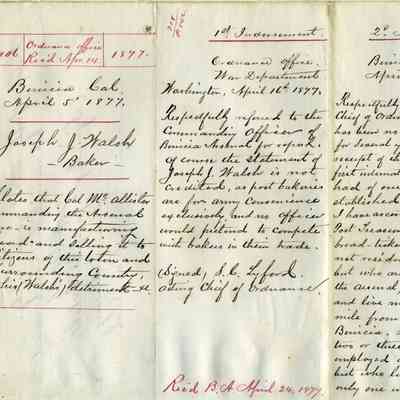 Ordnance Office
Rec'd Apr. 14. 1877.
Benicia Cal.
April 5" 1877.
Joseph J. Walsh
- Baker -
States that Col McAllister
commanding the Arsenal
is manufacturing
bread and selling it to
citizens of the town and
surrounding Country,
his (Walsh's) detriment &c.
1st Indorsement.
Ordnance Office.
War Department
Washington, April 16th 1877.
Respectfully referred to the
Commanding Officer of
Benicia Arsenal for report.
Of course the statement of
Joseph J. Walsh is not
credited, as post bakeries
are for army convenience
exclusively, and no officer
would pretend to compete
with bakers in their trade.
(Signed) S. C. Lyford.
Acting Chief of Ordnance.
Rec'd B. A. April 24, 1877
2d
Beni
April
Respectfully
Chief of Ordn
has been no
for issued
receipt of the
first indorsem
had of one
established
I have ascer
Post Treasure
bread ticket
not resident
but who are
the arsenal,
and live n
mile from
Benicia.
two or three
employed
but who li
only one